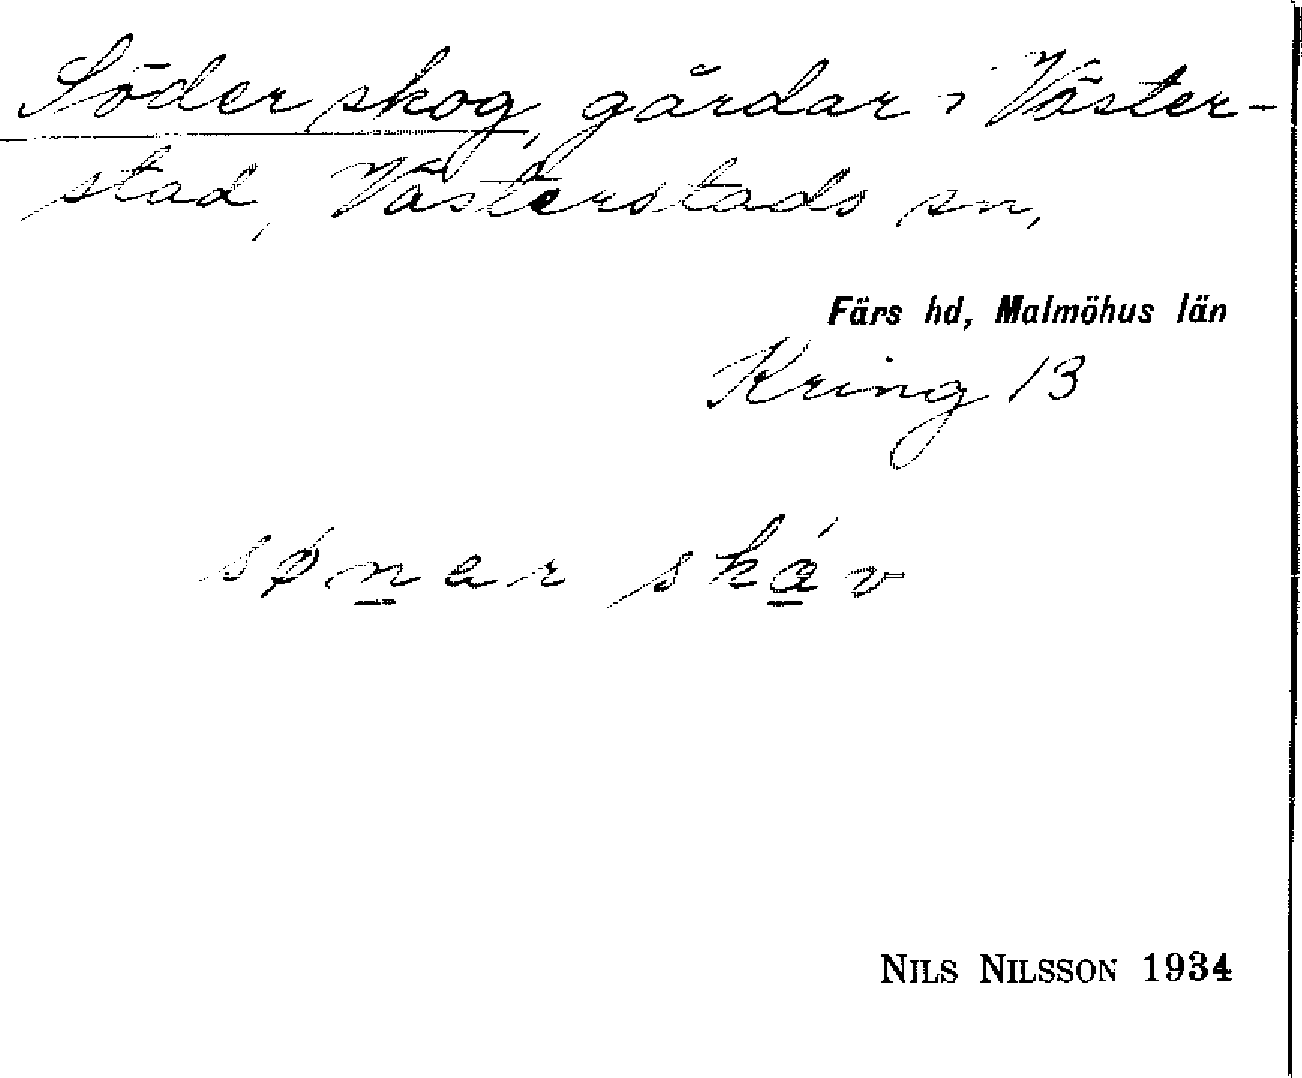 Söderskog, gårdar i Väster-
stad, Västerstads sn,
Färs hd, Malmöhus län
Kring 13
søn̲ar ská̲v
NILS NILSSON 1934